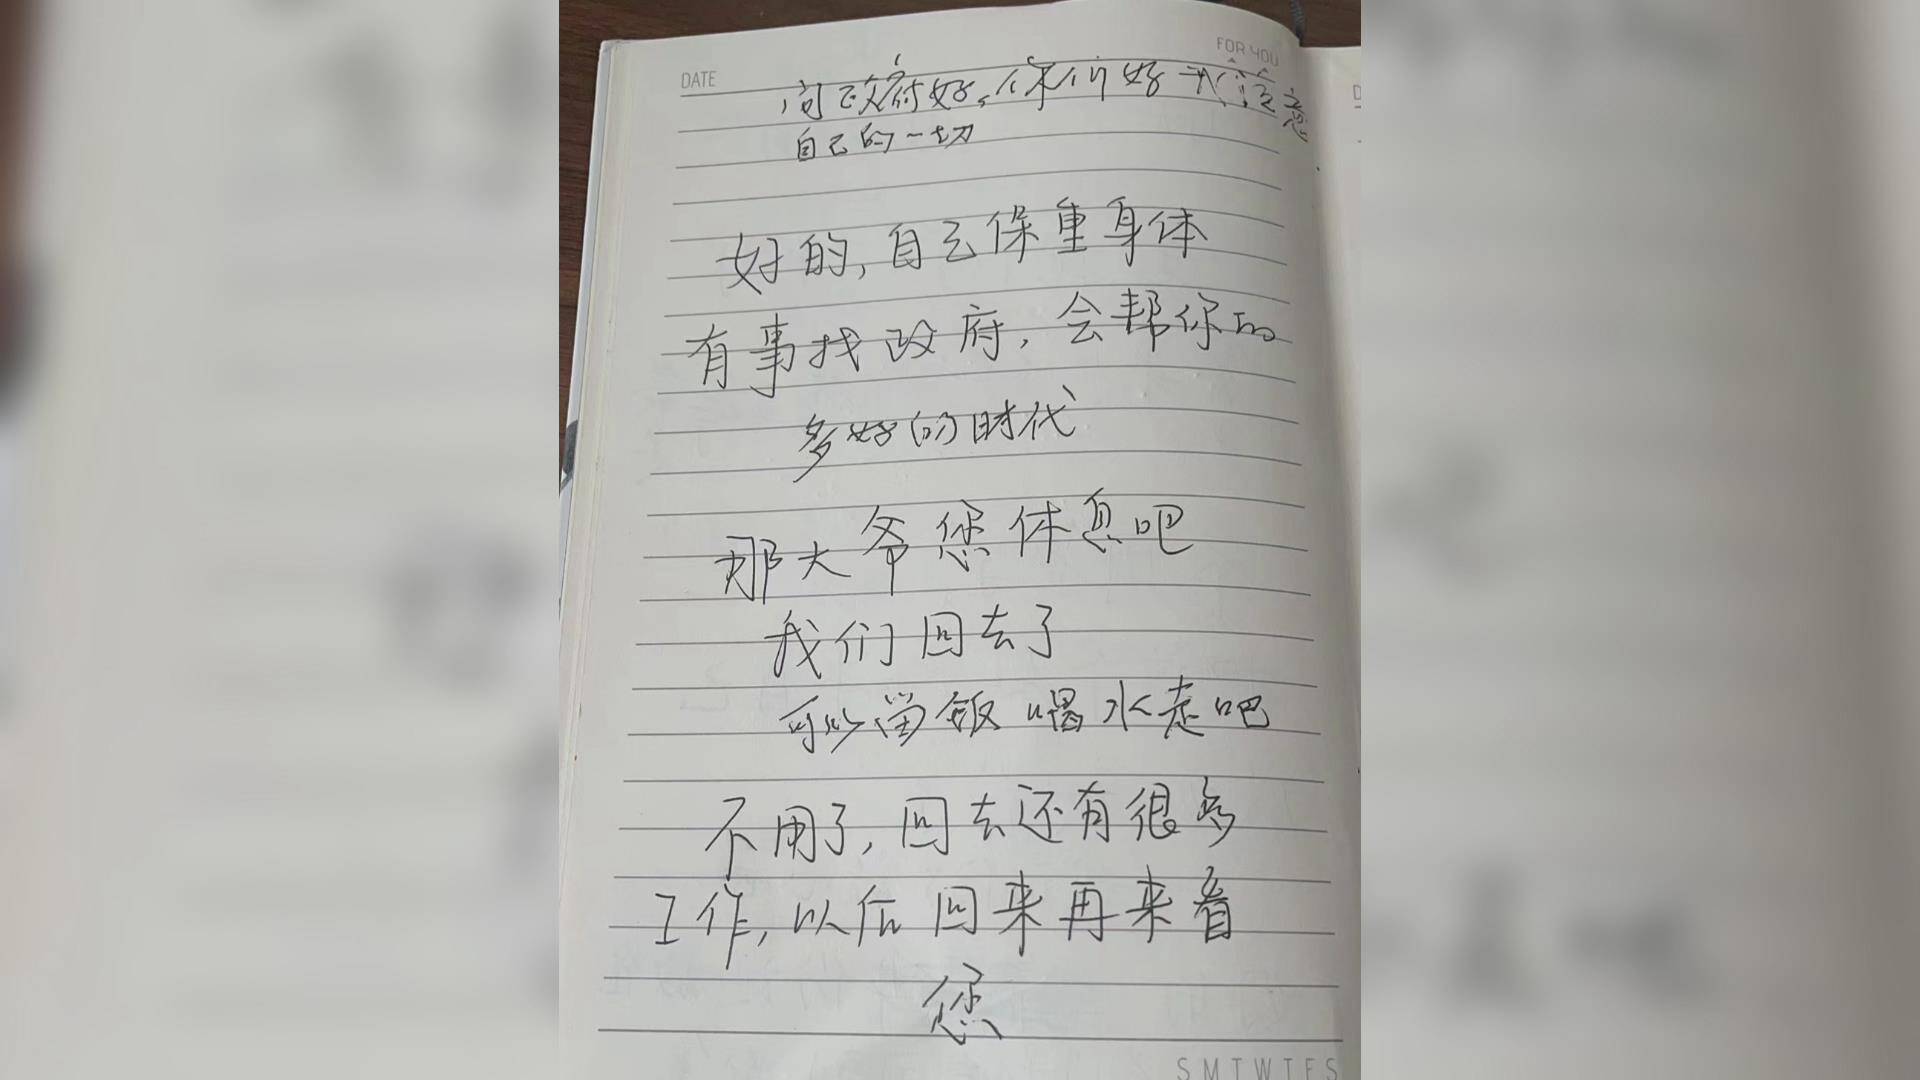 FOR YOU
DATE
问政府好。你们好 我注意
自己的一切
好的,自己保重身体
有事找政府,会帮你的
多好的时代
那大爷您休息吧
我们回去了
可以留饭喝水走吧
不用了,回去还有很多
工作,以后回来再来看
您
S M T W T F S